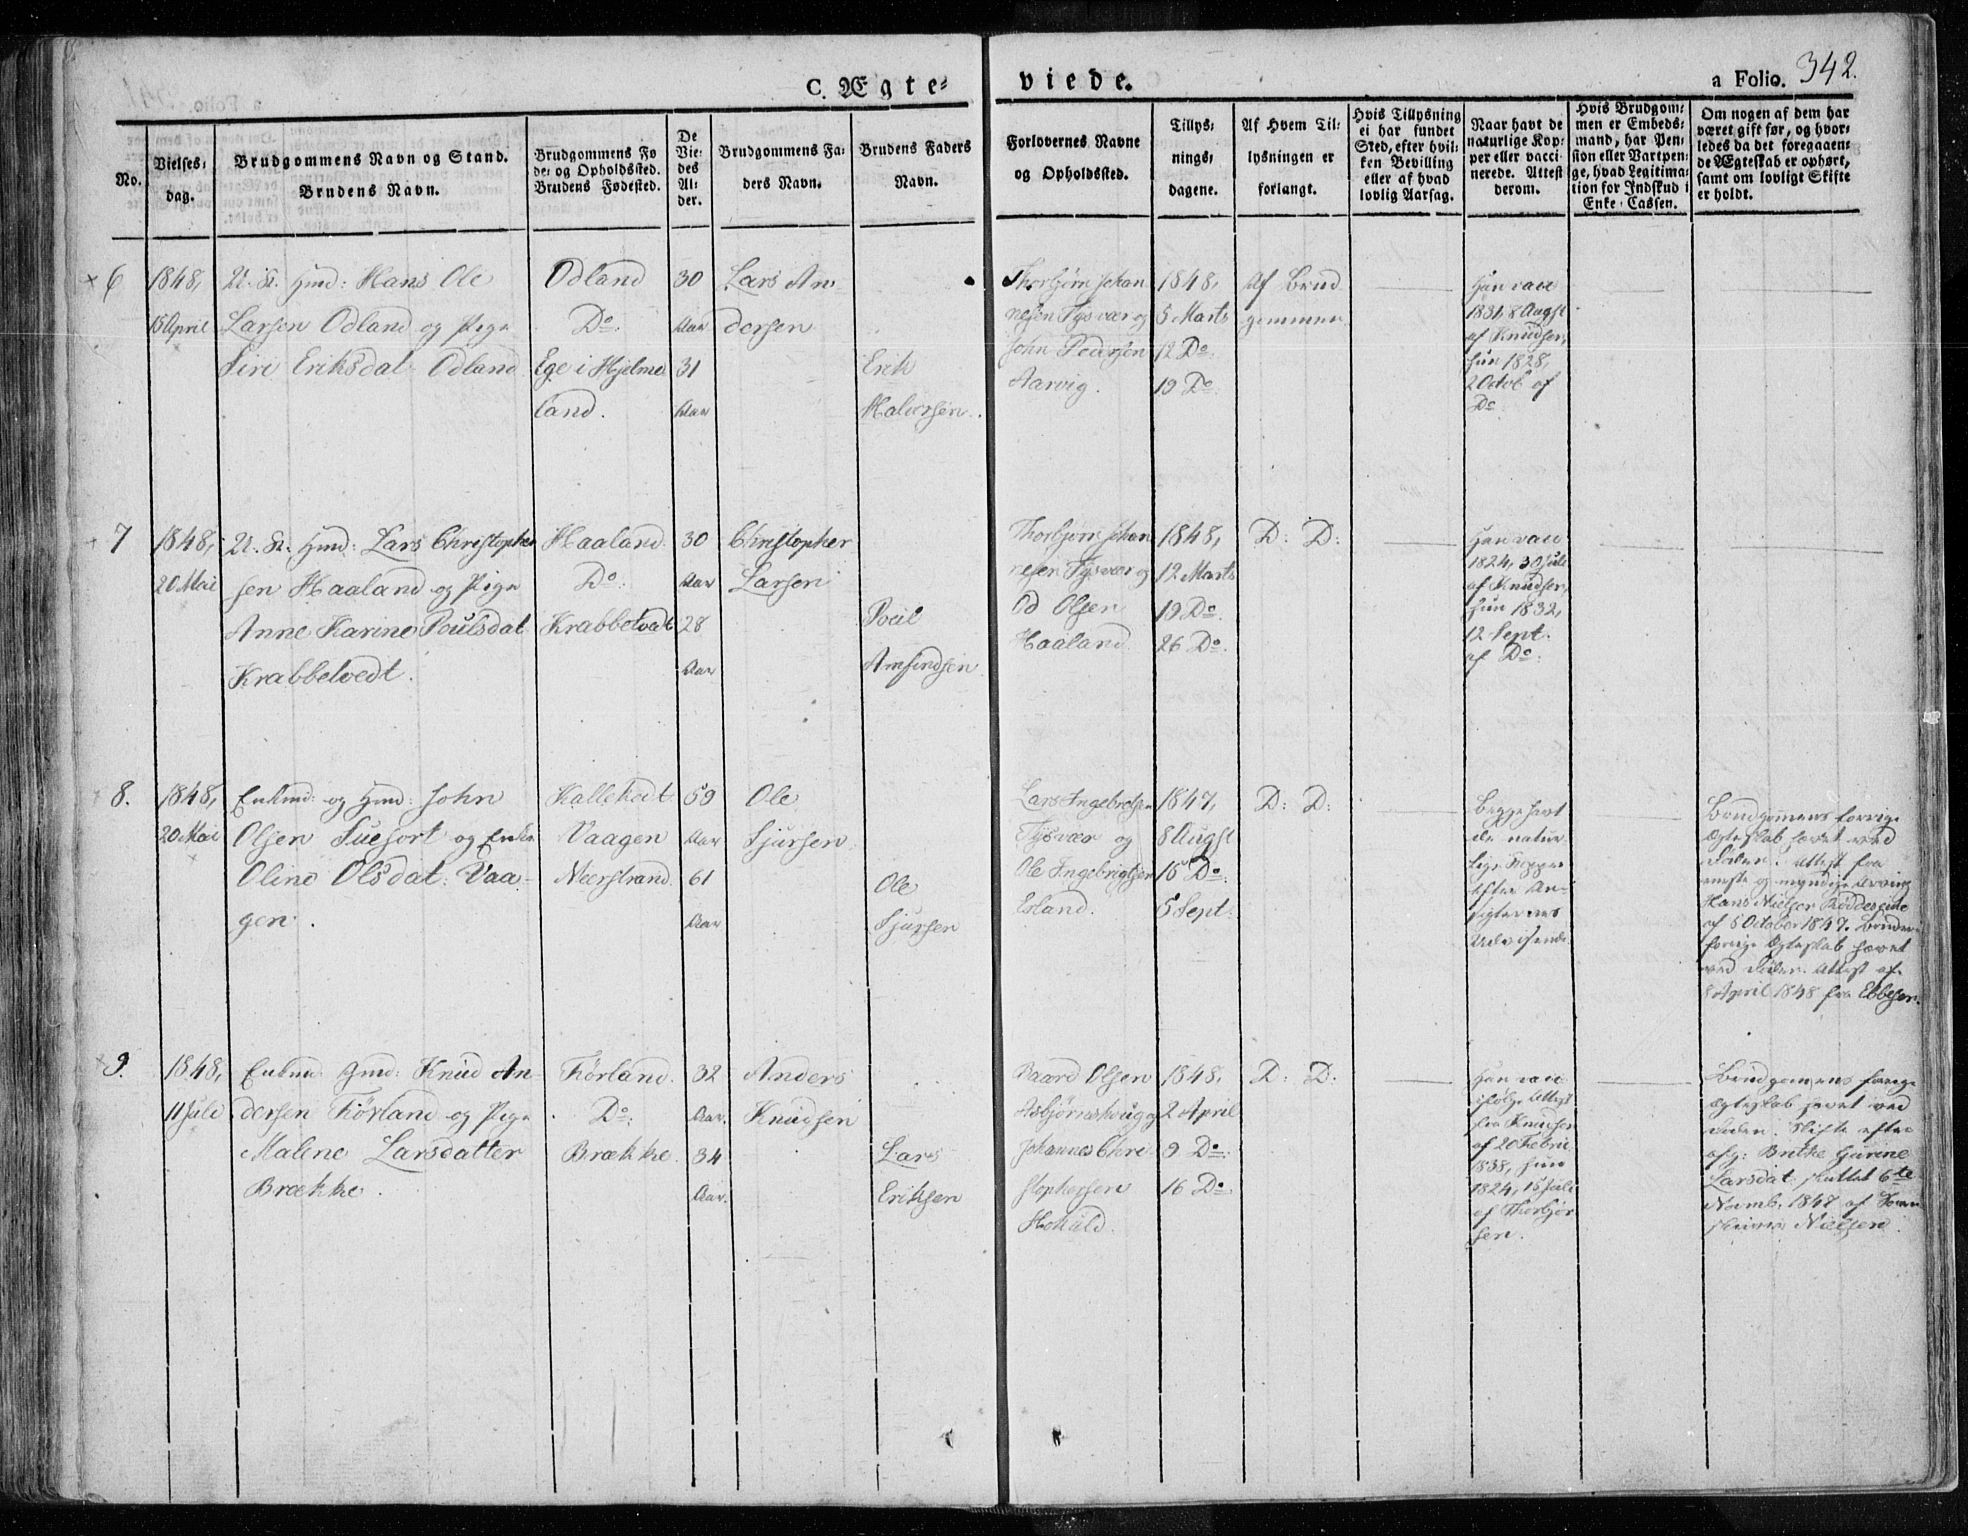 C. Ægte-
viede.
a Folio. 342.
No.
Vielses-
dag.
Brudgommens Navn og Stand.
Brudens Navn.
Brudgommens Fø
de- og Opholdssted.
Brudens Fødested.
De
Vie-
des
Al-
der.
Brudgommens Fa-
ders Navn.
Brudens Faders
Navn.
Forlovernes Navne
og Opholdssted.
Tillys-
nings-
dagene.
Af Hvem Til-
lysningen er
forlangt.
Hvis Tillysning
ei har fundet
Sted, efter hvil-
ken Bevilling
eller af hvad
lovlig Aarsag.
Naar havt de
naturlige Kop-
per eller vacci-
nerede. Attest
derom.
Hvis Brudgom-
men er Embeds-
mand, har Pen-
sion eller Vartpen-
ge, hvad Legitima-
tion for Indskud i
Enke-Cassen.
Om nogen af dem har
været gift før, og hvor-
ledes da det foregaaen-
de Ægteskab er ophørt,
samt om lovligt Skifte
er holdt.
6
1848,
15 April
U. St. Gmd: Hans Ole
Larsen Odland og Pige
Siri Eriksdat. Odland
Odland
Do.
Ege i Hjelme
land.
30
Aar
31
Aar
Lars An
dersen
Erik
Halvorsen.
Thorbjørn Johan
nesen Tysvær og
John Pedersen
Aarvig.
1848,
5 Marts
12 Do.
19 Do.
Af Brud
gommen
Han vacc
1831, 8 Augst
af Knudsen,
hun 1828,
2 Octob af
Do.
7
1848,
20 Mai
U. St. Gmd: Lars Christopher
sen Haaland og Pige
Anne Karine Poulsdat
Krabbetvedt.
Haaland
Do.
Krabbetvedt
30
Aar
28
Aar
Christopher
Larsen
Poul
Amundsen
Thorbjørn Johan
nesen Tysvær og
Od Olsen
Haaland
1848,
12 Marts
19 Do.
26 Do.
D: D:
Han vacc
1824, 30 Juli
af Knudsen,
hun 1832,
12 Sept.
af Do.
8.
1848,
20 Mai
Enkmd: og Gmd: John
Olsen Tuefort og Enke
Oline Olsdat. Vaa-
gen.
Kallekodt
Vaagen
Neerstrand
59
Aar
61
Aar
Ole
Sjursen
Ole
Sjursen
Lars Ingebretsen
Tysvær og
Ole Ingebrigtsen
Esland.
1847,
8 Augst
15 Do.
5 Sept.
D: D:
Begge havt
de natur
lige Kopper
efter An-
sigternes
Udvisende
Brudgomens forrige
Ægteskab hævet ved
Døden. Attest fra
eneste og myndige Arving
Hans Nielsen
af 5 October 1847. Brudens
forrige Ægteskab hævet
ved Døden. Attest af
8 April 1848 fra Ebbesen.
9.
1848,
11 Juli
Enkmd Gmd: Knud An-
dersen Førland og Pige
Malene Larsdatter
Brække.
Førland.
Do.
Brække.
32
Aar.
34
Aar.
Anders
Knudsen
Lars
Eriksen
Baard Olsen
Asbjørnshug og
Johannes Chri
stophersen
Hokald.
1848,
2 April
9 Do.
16 Do.
D: D:
Han vacc
ifølge Attest
fra Knudsen
af 20 Febru
1838, hun
1824, 15 Juli
af Thorbjør
sen.
Brudgomens forrige
Ægteskab hævet ved
Døden. Skifte efter
afg: Brithe Gurine
Larsdat sluttet 6te
Novemb. 1847 af Soren
skriver Nielsen.